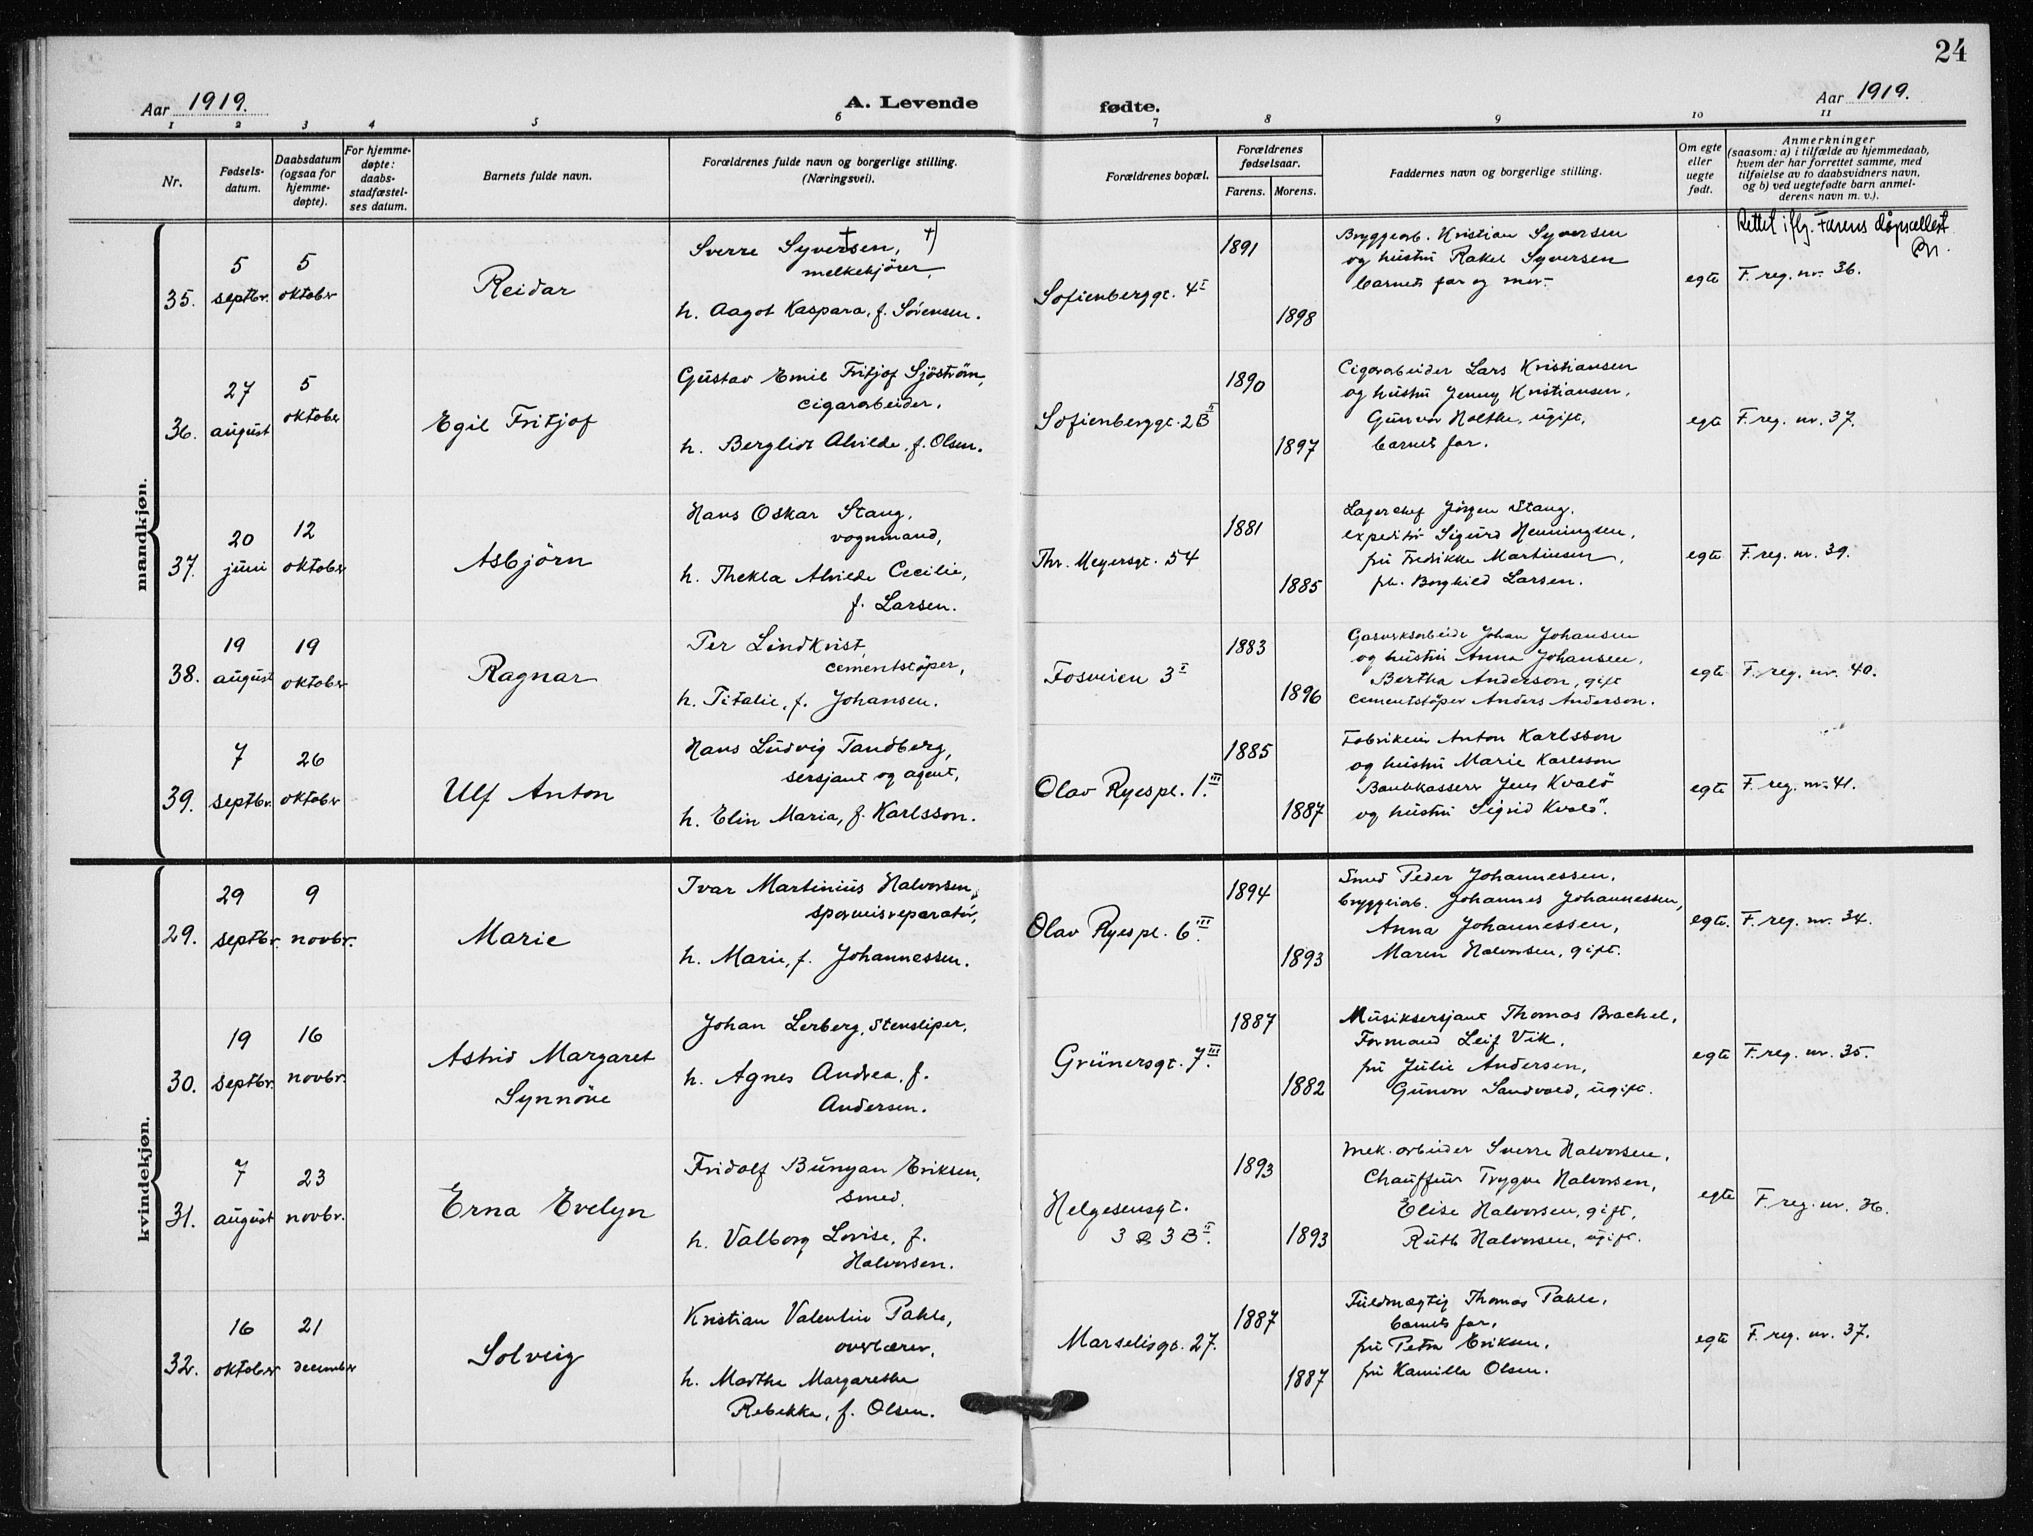 24
Aar 1919.
A. Levende fødte.
Aar 1919.
1 2 3 4 5 6 7 8 9 10 11
Nr.
Fødsels-
datum.
Daabsdatum
(ogsaa for
hjemme-
døpte).
For hjemme-
døpte:
daabs-
stadfæstel-
ses datum.
Barnets fulde navn.
Forældrenes fulde navn og borgerlige stilling.
(Næringsvei).
Forældrenes bopæl.
Forældrenes
fødselsaar.
Farens. Morens.
Faddernes navn og borgerlige stilling.
Om egte
eller
uegte
født.
Anmerkninger
(saasom: a) i tilfælde av hjemmedaab,
hvem der har forrettet samme, med
tilføielse av to daabsvidners navn,
og b) ved uegtefødte barn anmel-
derens navn m. v.).
mandkjøn.
35.
5
septbr.
5
oktober
Reidar
Sverre Syversen, +)
melkekjører,
h. Aagot Kaspara, f. Sörensen.
Sofienberggt. 4 I
1891
1898
Bryggearb. Kristian Syversen
og hustru Rakel Syversen
barnets far og mor.
egte
Rettet iflg. Farens dåpsellest
F. reg. nr. 36.
36.
27
august
5
oktober
Egil Fritjof
Gustav Emil Fritjof Sjöström,
cigararbeider,
h. Bergliot Alvilde, f. Olsen.
Sofienberggt. 2B II
1890
1897
Cigararbeider Lars Kristiansen
og hustru Jenny Kristiansen,
Gunvor Holthe, ugift,
barnets far.
egte
F. reg. nr. 37.
37.
20
juni
12
oktober
Asbjörn
Hans Oskar Stang,
vognmand,
h. Thekla Alvilde Cecilie,
f. Larsen.
Thv. Meyersgt. 54
1881
1885
Lagerchef Jörgen Stang,
expeditör Sigurd Henningsen,
fru Fredrikke Martinsen,
frk. Borghild Larsen.
egte
F. reg. nr. 39.
38.
19
august
19
oktober
Ragnar
Per Lindkvist,
cementstöper,
h. Titalie, f. Johansen.
Fosveien 3 I
1883
1896
Gasverksarbeider Johan Johansen
og hustru Anna Johansen,
Bertha Anderson, gift
cementstöper Anders Anderson.
egte
F. reg. nr. 40.
39.
7
septbr.
26
oktober
Ulf Anton
Hans Ludvig Tandberg,
sersjant og agent,
h. Elin Maria, f. Karlsson.
Olav Ryespl. 1. III
1885
1887
Fabrikeier Anton Karlsson
og hustru Marie Karlsson
Bankkasserer Jens Kvalö
og hustru Sigrid Kvalö.
egte
F. reg. nr. 41.
kvindekjøn.
29.
29
septbr.
9
novbr.
Marie
Ivar Martinius Halvorsen,
sporveisreparatör,
h. Marie, f. Johannessen.
Olav Ryespl. 6 III
1894
1893
Smed Peder Johannessen,
bryggeiarb. Johannes Johannessen,
Anna Johannessen,
Maren Halvorsen, gift.
egte.
F. reg. nr. 34.
30.
19
septbr.
16
novbr.
Astrid Margaret
Synnöve
Johan Lerberg, stensliper,
h. Agnes Andrea, f.
Andersen.
Grünersgt. 7. III
1887
1882
Musiksersjant Thomas Brachel,
Formand Leif Vik,
fru Julie Andersen,
Gunvor Sandvold, ugift.
egte
F. reg. nr. 35.
31.
7
august
23
novbr.
Erna Evelyn
Fridolf Bunyan Eriksen,
smed,
h. Valborg Lovise, f.
Halvorsen.
Helgesensgt.
3 3 B II.
1893
1893
Mek. arbeider Sverre Halvorsen,
Chauffeur Trygve Halvorsen,
Elise Halvorsen, gift,
Ruth Halvorsen, ugift.
egte
F. reg. nr. 36.
32.
16
oktober
21
december
Solveig
Kristian Valentin Pahle,
overlærer,
h. Marthe Margarethe
Rebekka, f. Olsen.
Marselisgt. 27.
1887
1887
Fuldmægtig Thomas Pahle,
barnets far,
fru Petra Eriksen,
fru Kamilla Olsen.
egte
F. reg. nr. 37.